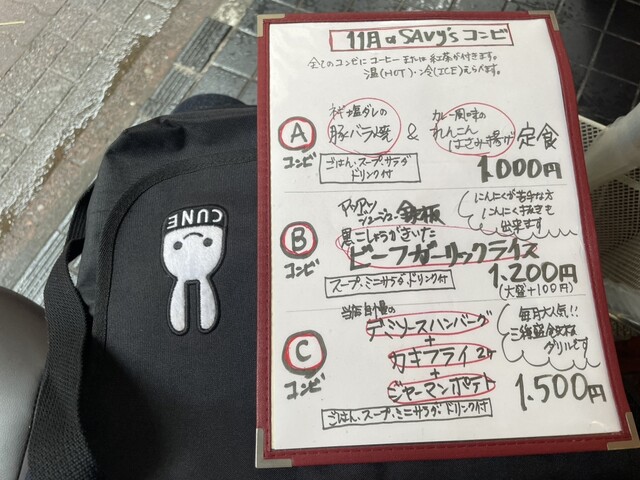 11月のSAVy'sコンビ
全てのコンビにコーヒーまたは紅茶が付きます。
温(HOT)・冷(ICE)えらべます。
A コンビ
ネギ塩ダレの
豚バラ焼
&
カレー風味の
れんこん
はさみ揚げ
定食
ごはん・スープ・サラダ
ドリンク付
1000円
B コンビ
アツアツ
ジュージュー鉄板
黒こしょうがきいた
ビーフガーリックライス
にんにくが苦手な方
にんにく抜きも
出来ます
スープ・ミニサラダ・ドリンク付
1.200円
(大盛+100円)
C コンビ
当店自慢の
デミソースハンバーグ
+
カキフライ2ケ
+
ジャーマンポテト
毎月大人気!!
グリルです
ごはん・スープ・ミニサラダ・ドリンク付
1.500円
CUNE